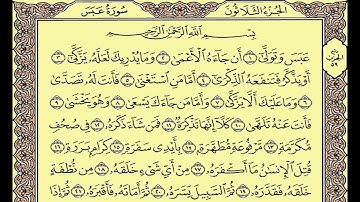 الجزء الثلاثون سورة عبس
بِسْمِ اللَّهِ الرَّحْمَٰنِ الرَّحِيمِ
عَبَسَ وَتَوَلَّىٰ ١ أَن جَاءَهُ الْأَعْمَىٰ ٢ وَمَا يُدْرِيكَ لَعَلَّهُ يَزَّكَّىٰ ٣
أَوْ يَذَّكَّرُ فَتَنفَعَهُ الذِّكْرَىٰ ٤ أَمَّا مَنِ اسْتَغْنَىٰ ٥ فَأَنتَ لَهُ تَصَدَّىٰ
٦ وَمَا عَلَيْكَ أَلَّا يَزَّكَّىٰ ٧ وَأَمَّا مَن جَاءَكَ يَسْعَىٰ ٨ وَهُوَ يَخْشَىٰ ٩
فَأَنتَ عَنْهُ تَلَهَّىٰ ١٠ كَلَّا إِنَّهَا تَذْكِرَةٌ ١١ فَمَن شَاءَ ذَكَرَهُ ١٢ فِي صُحُفٍ
مُّكَرَّمَةٍ ١٣ مَّرْفُوعَةٍ مُّطَهَّرَةٍ ١٤ بِأَيْدِي سَفَرَةٍ ١٥ كِرَامٍ بَرَرَةٍ ١٦
قُتِلَ الْإِنسَانُ مَا أَكْفَرَهُ ١٧ مِنْ أَيِّ شَيْءٍ خَلَقَهُ ١٨ مِن نُّطْفَةٍ
خَلَقَهُ فَقَدَّرَهُ ١٩ ثُمَّ السَّبِيلَ يَسَّرَهُ ٢٠ ثُمَّ أَمَاتَهُ فَأَقْبَرَهُ ٢١ ثُمَّ إِذَا